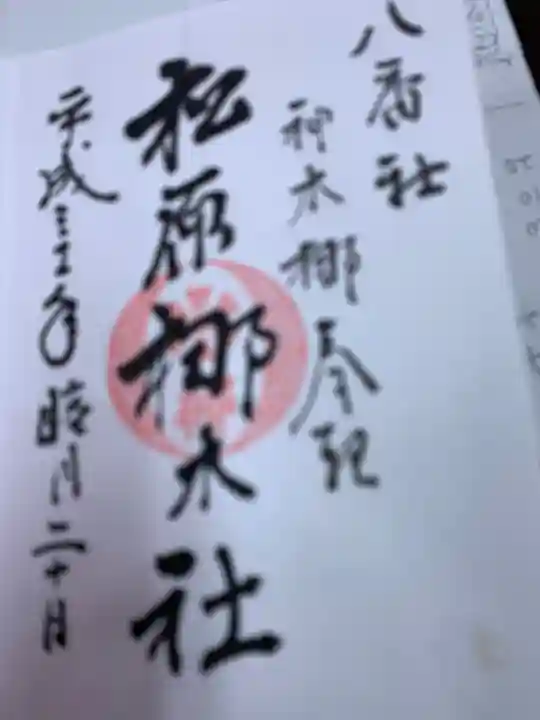 八番社
神木梛奉祀
松原梛木社
平成三十一年睦月二十日